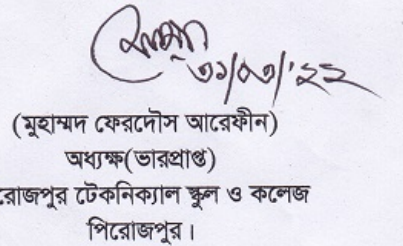 ৩১/০৩/'২২
(মুহাম্মদ ফেরদৌস আরেফীন)
অধ্যক্ষ(ভারপ্রাপ্ত)
রোজপুর টেকনিক্যাল স্কুল ও কলেজ
পিরোজপুর।